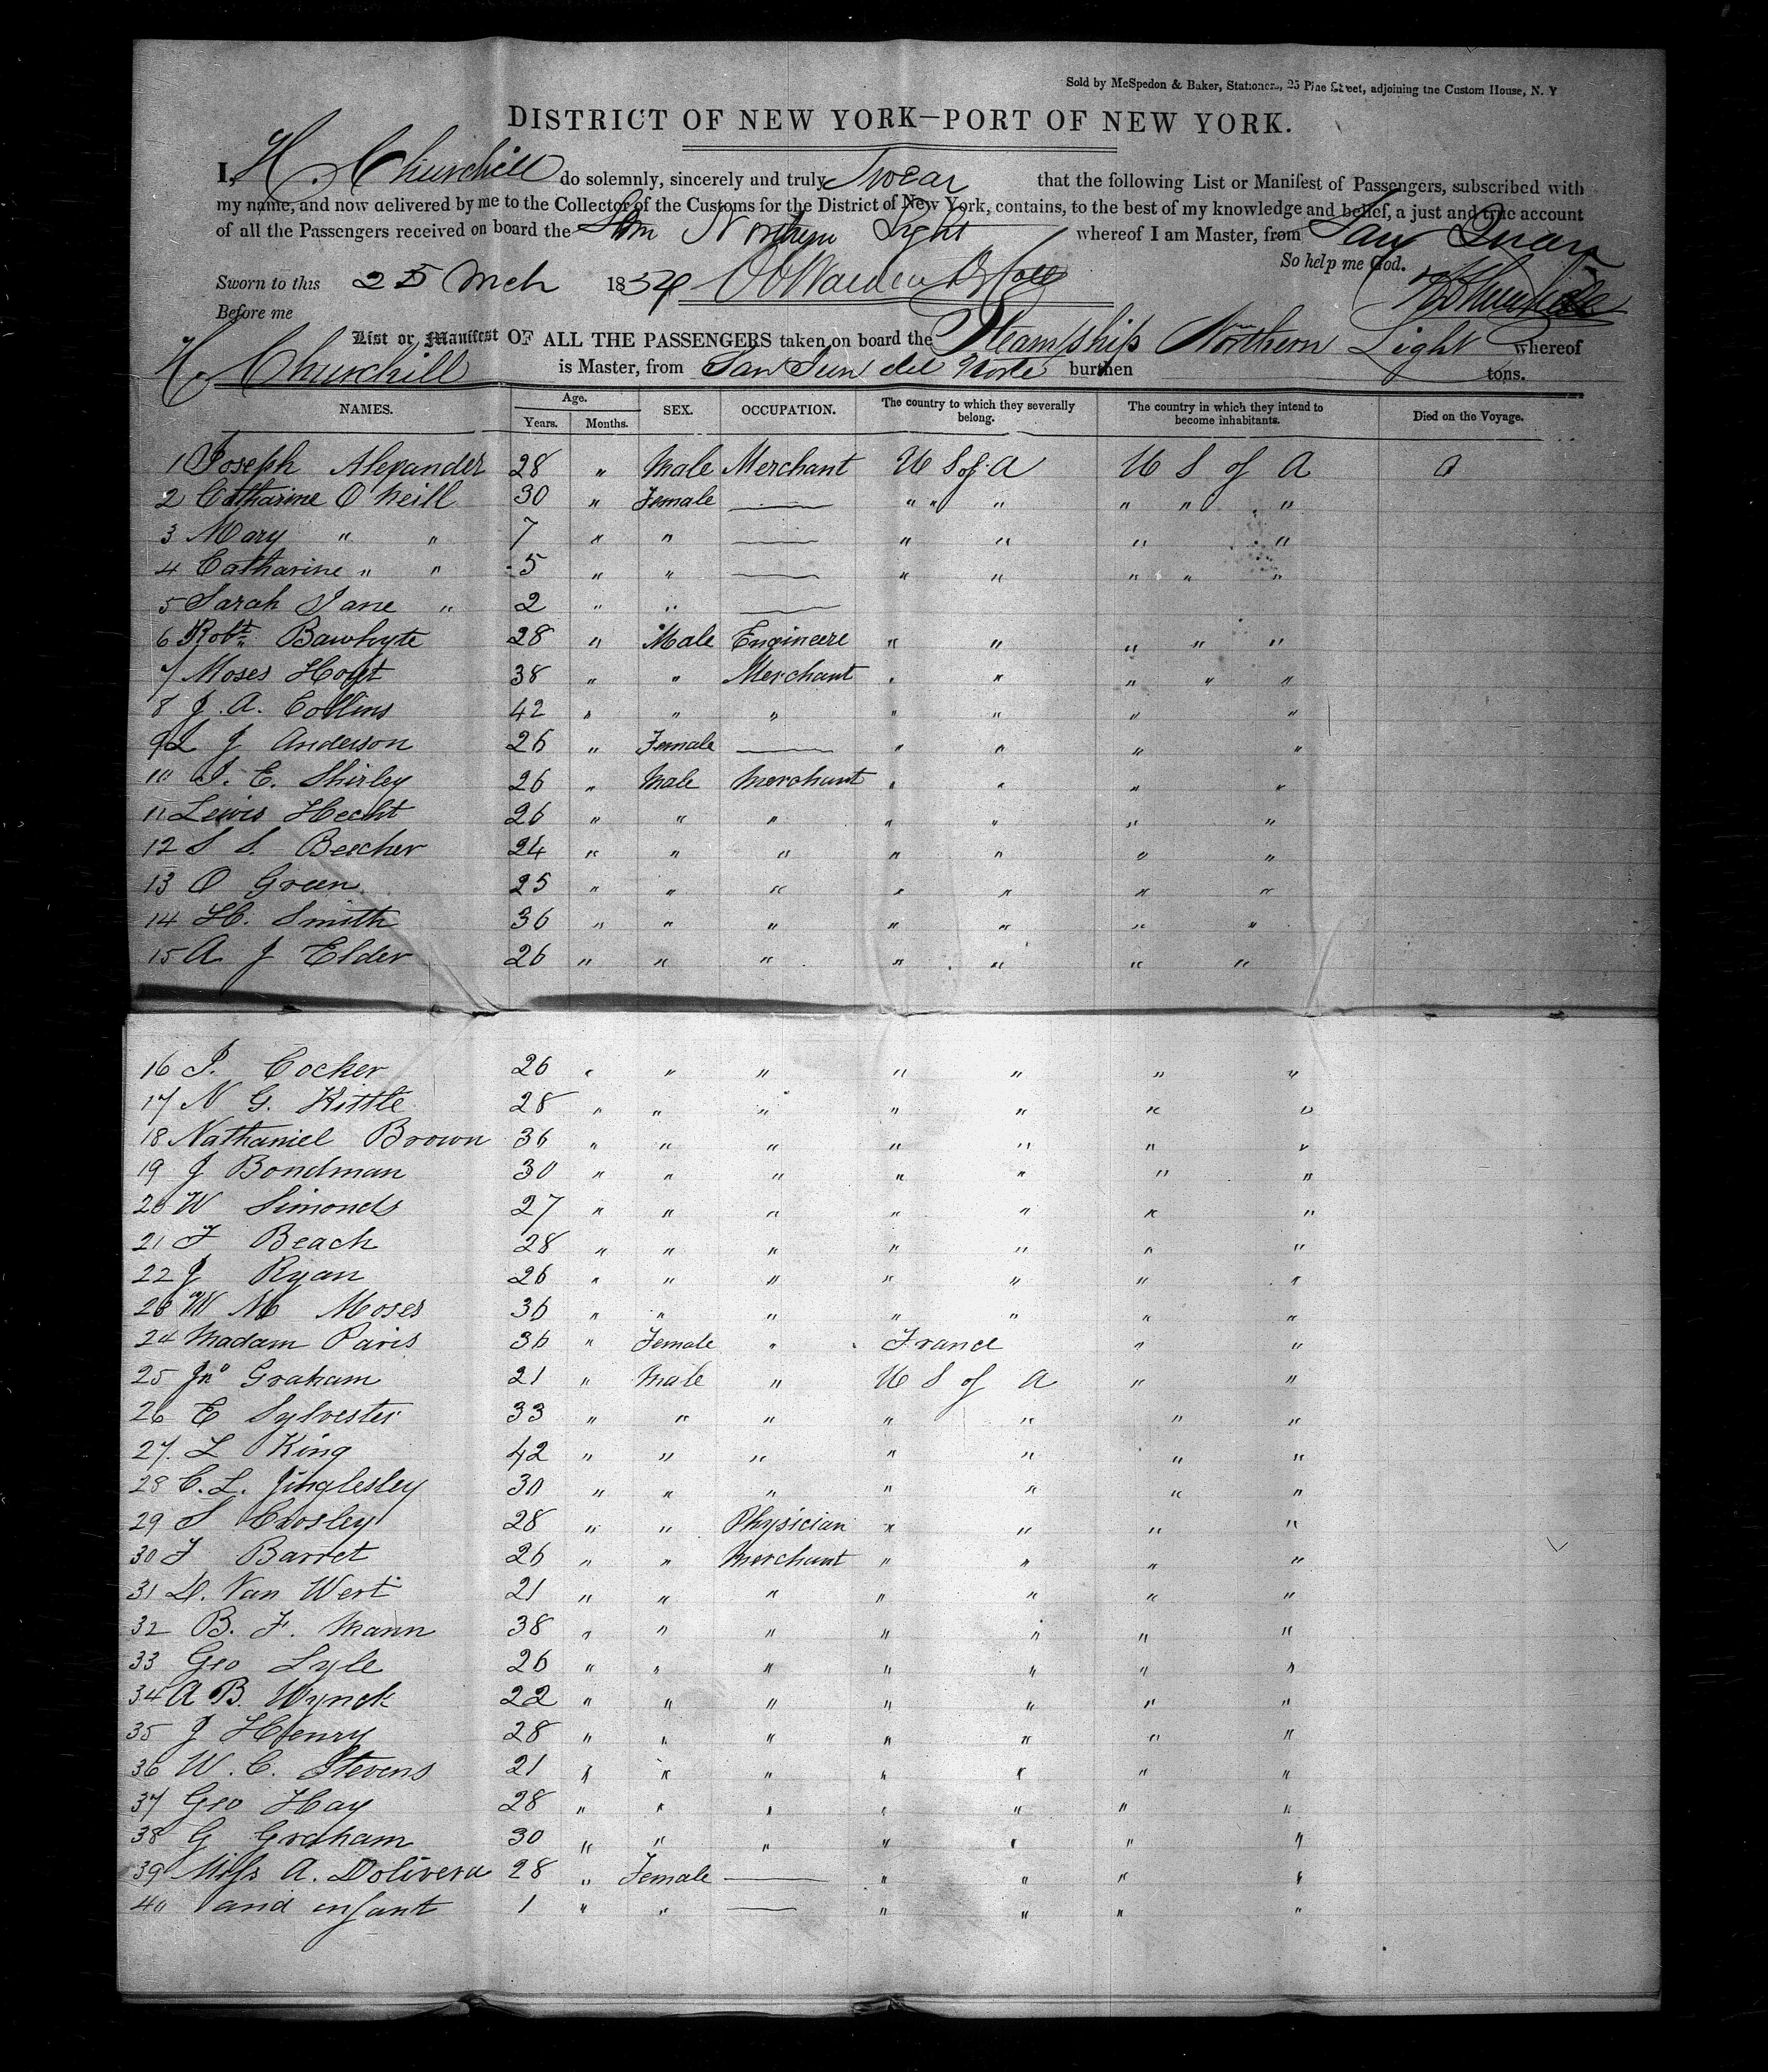 Sold by McSpedon & Baker, Stationers, 25 Pine Street, adjoining the Custom House, N. Y
DISTRICT OF NEW YORK—PORT OF NEW YORK.
I, H. Churchill do solemnly, sincerely and truly Swear that the following List or Manifest of Passengers, subscribed with
my name, and now delivered by me to the Collector of the Customs for the District of New York, contains, to the best of my knowledge and belief, a just and true account
of all the Passengers received on board the Stm Northern Light whereof I am Master, from San Juan
So help me God.
Sworn to this 25 Mch 1854
H Churchill
Before me
List or Manifest OF ALL THE PASSENGERS taken on board the Steamship Northern Light whereof
H. Churchill is Master, from San Juan del Norte burthen tons.
NAMES. Age. Years. Months. SEX. OCCUPATION. The country to which they severally belong. The country in which they intend to become inhabitants. Died on the Voyage.
1 Joseph Alexander 28 " Male Merchant U S of A U S of A 0
2 Catharine O Neill 30 " Female — " " " " " "
3 Mary " " 7 " " — " " " "
4 Catharine " " 5 " " — " " " " "
5 Sarah Jane " 2 " " —
6 Robt. Bawhyte 28 " Male Engineere " " " " "
7 Moses Hoyt 38 " " Merchant " " " " "
8 J. A. Collins 42 " " " " " " "
9 L J Anderson 26 " Female — " " " "
10 J. E. Shirley 26 " Male Merchant " " " "
11 Lewis Hecht 26 " " " " " " "
12 S S. Beecher 24 " " " " " " "
13 O Green 25 " " " " " " "
14 H. Smith 36 " " " " " " "
15 A J Elder 26 " " " " " " "
16 J. Cocker 26 " " " " " " "
17 N G. Kittle 28 " " " " " " "
18 Nathaniel Brown 36 " " " " " " "
19 J Bondman 30 " " " " " " "
20 W Simonds 27 " " " " " " "
21 F Beach 28 " " " " " " "
22 J Ryan 26 " " " " " " "
23 W M Moses 36 " " " " " " "
24 Madam Paris 36 " Female " France " "
25 Jno Graham 21 " Male " U S of A " "
26 E Sylvester 33 " " " " " " "
27. L King 42 " " " " " " "
28 C. L. Jinglesley 30 " " " " " " "
29 S Crosley 28 " " Physician " " " "
30 F Barret 26 " " Merchant " " " "
31 D. Van Wert 21 " " " " " " "
32 B. F. Mann 38 " " " " " " "
33 Geo Lyle 26 " " " " " " "
34 A B. Wynck 22 " " " " " " "
35 J Henry 28 " " " " " " "
36 W. C. Stevens 21 " " " " " " "
37 Geo Hay 28 " " " " " " "
38 G Graham 30 " " " " " " "
39 Miss A. Dolivera 28 " Female — " " " "
40 and infant 1 " " — " " " "